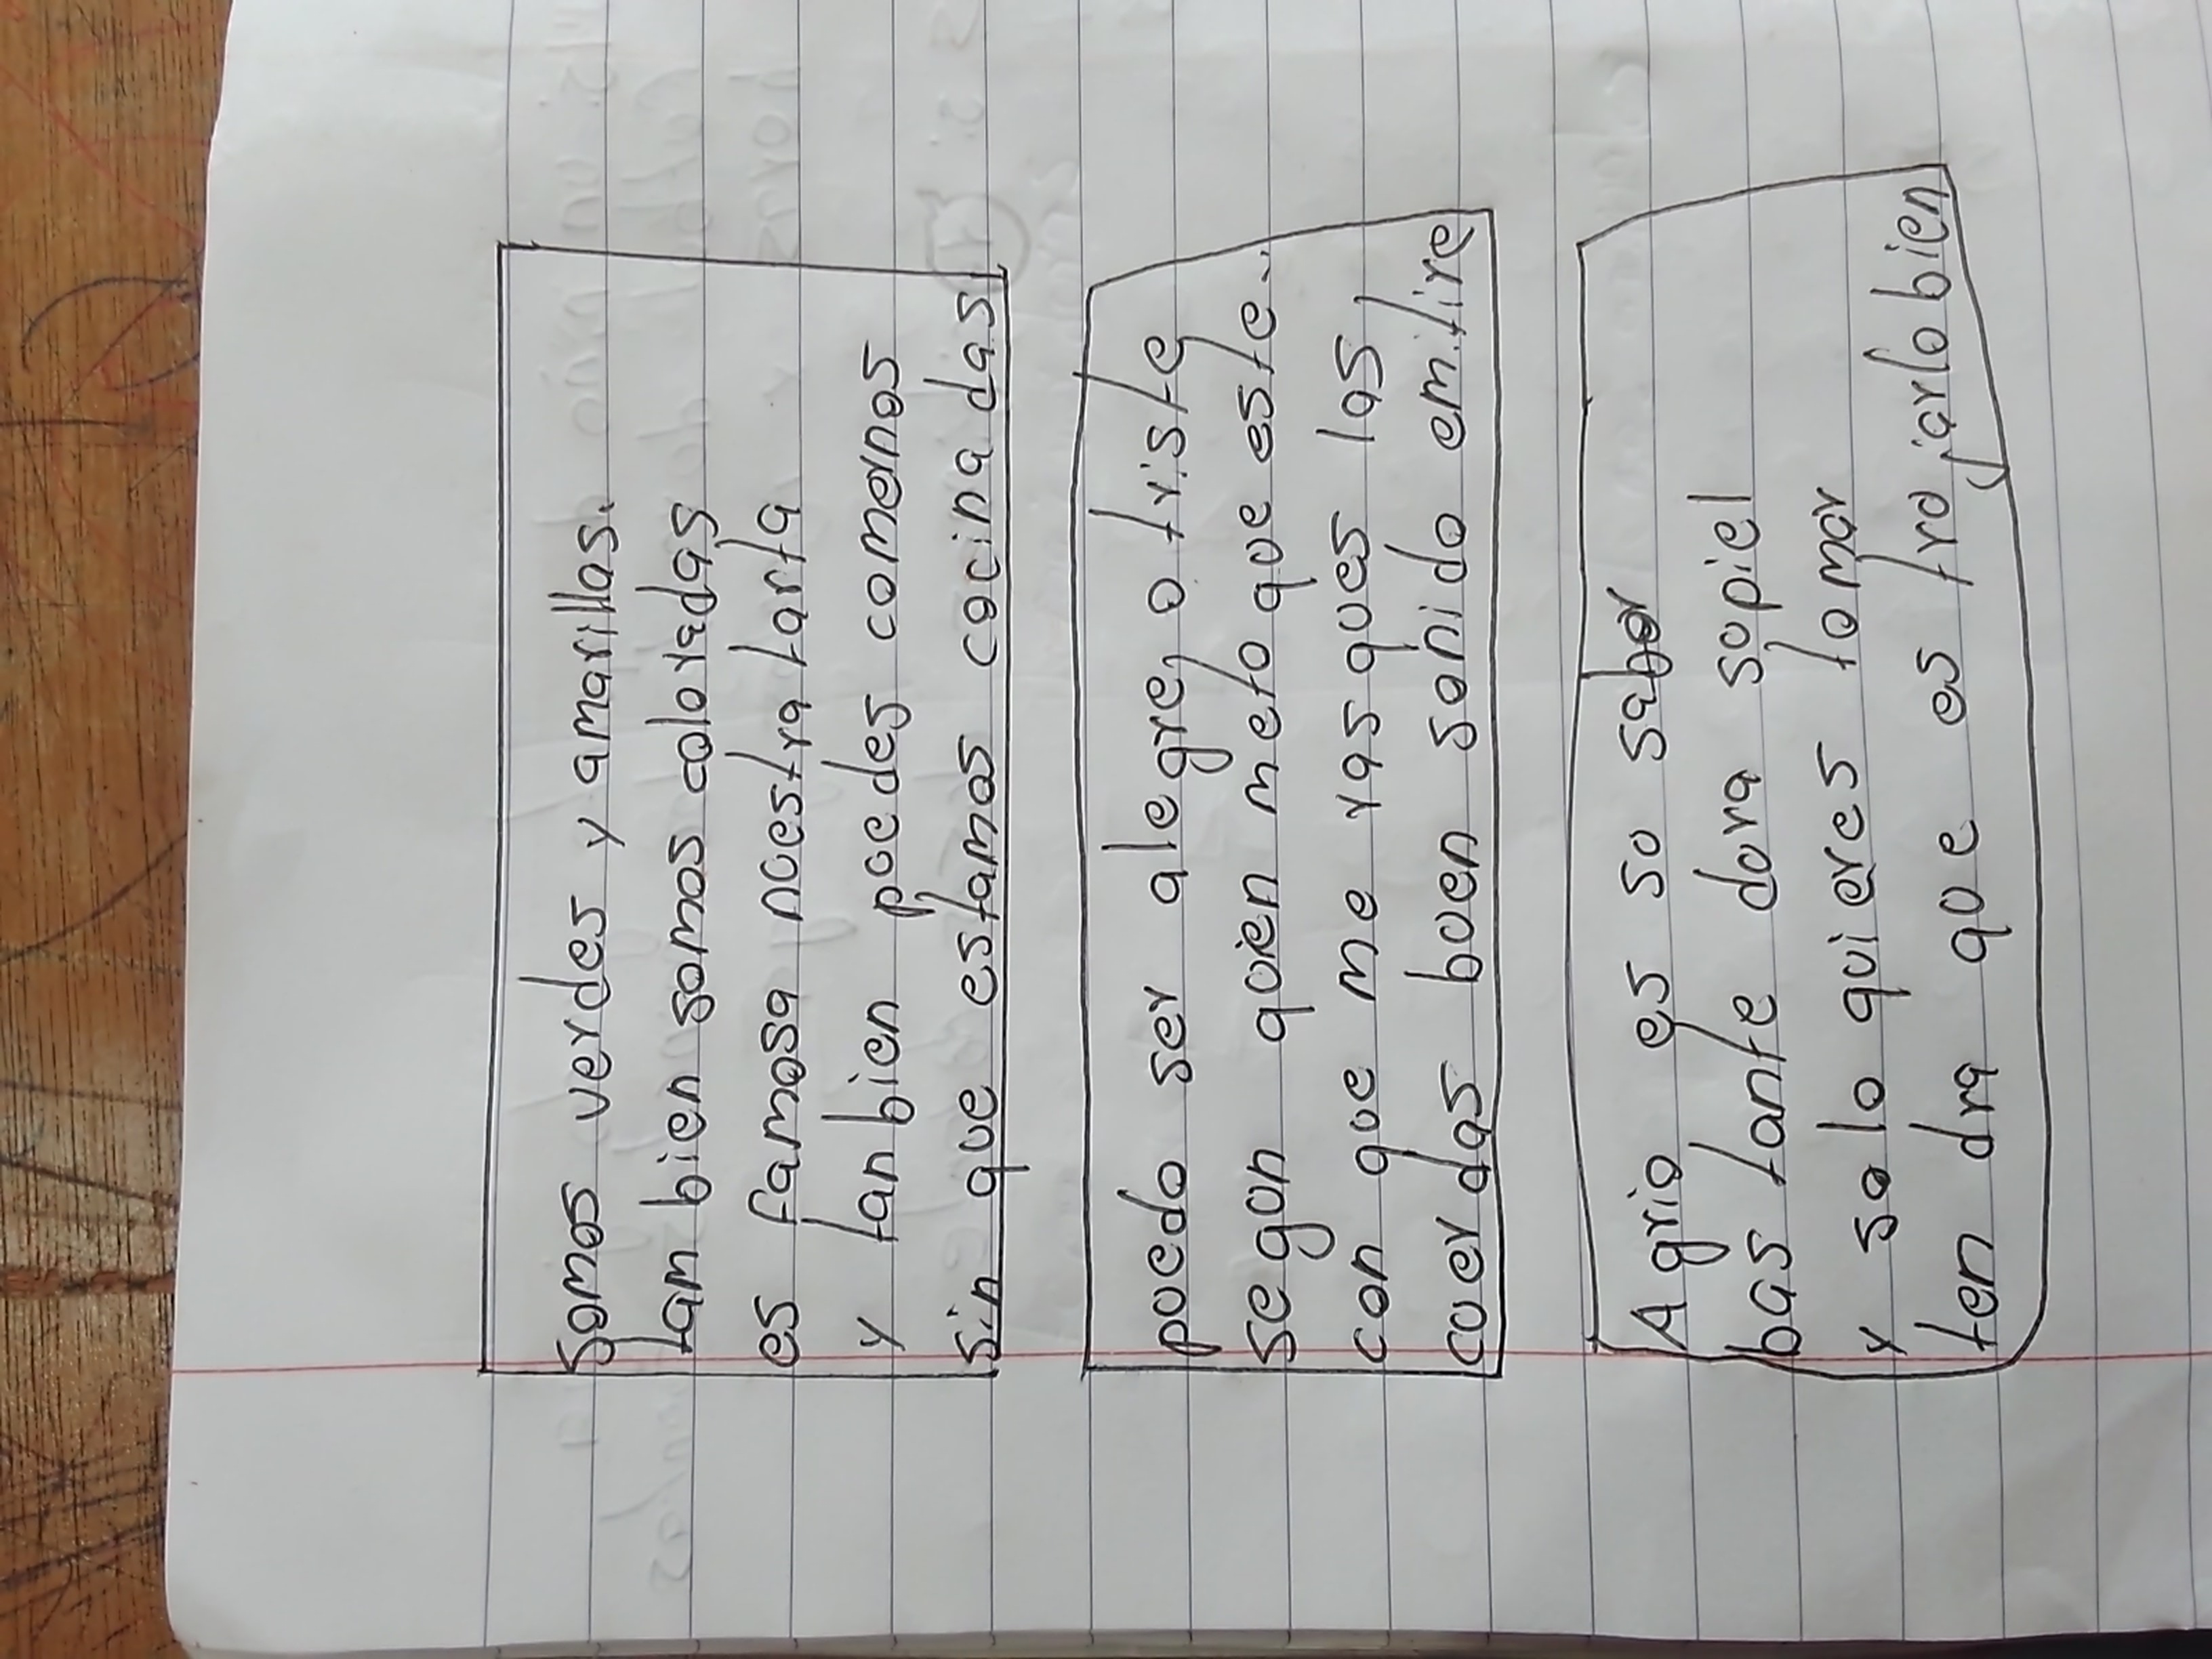 Somos verdes y amarillas.
tam bien somos coloradas
es famosa noestra tarta
y tan bien poedes comernos
sin qoe estamos cocina das
poedo ser alegre, o triste
segon qoien meto qoe este..
con qoe me ras qoes las
coer das boen sonido emitire
Agrio es so sabor
bas tante dora sopiel
y so lo qoieres tomar
ten dra qoe es troijarlo bien